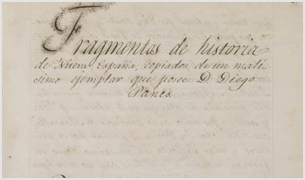 Fragmentos de historia
de Nueva España, copiados de un mali
simo ejemplar que posee D. Diego
Panes